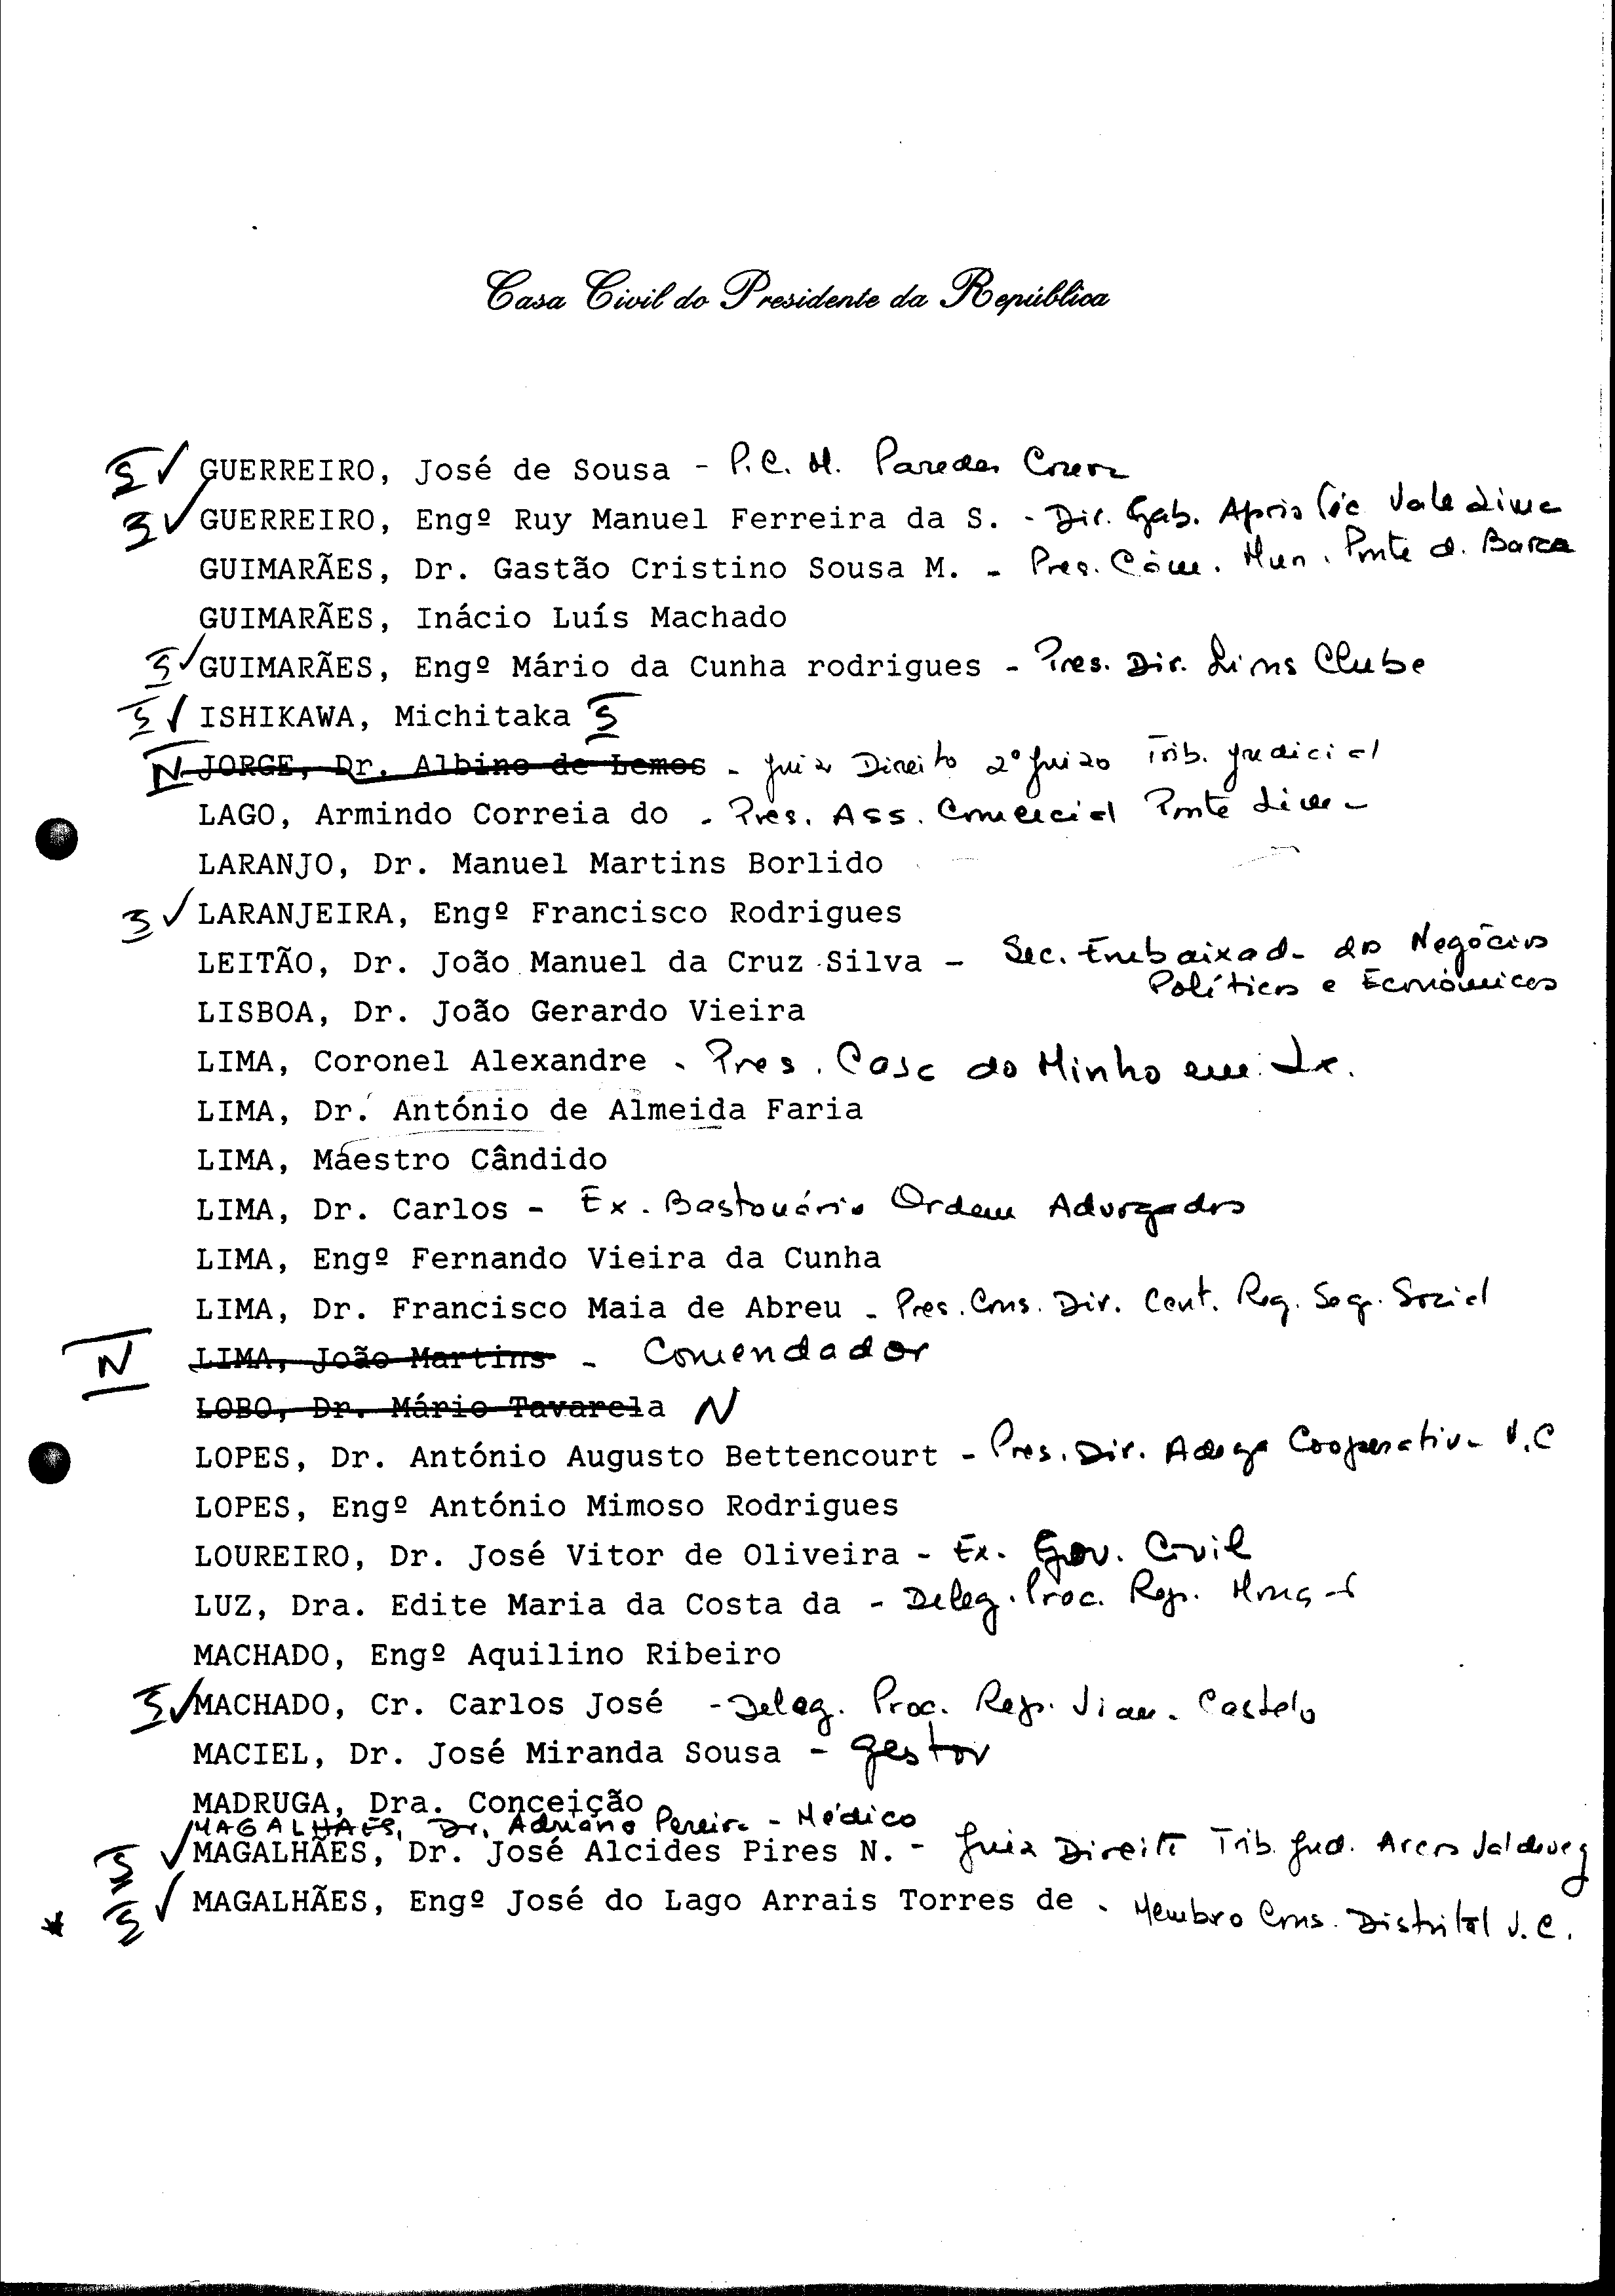 Casa Civil do Presidente da República
S ✓ GUERREIRO, José de Sousa - P.C.M. Paredes Coura
S ✓ GUERREIRO, Engº Ruy Manuel Ferreira da S. - Dir. Gab. Apoio Téc Vale Lima
GUIMARÃES, Dr. Gastão Cristino Sousa M. - Pres. Câm. Mun. Ponte d. Barca
GUIMARÃES, Inácio Luís Machado
S ✓ GUIMARÃES, Engº Mário da Cunha rodrigues - Pres. Dir. Lions Clube
S ✓ ISHIKAWA, Michitaka S
N JORGE, Dr. Albino de Lemos - Juiz Direito 2º Juizo Trib. Judicial
LAGO, Armindo Correia do - Pres. Ass. Comercial Ponte Lima
LARANJO, Dr. Manuel Martins Borlido
S ✓ LARANJEIRA, Engº Francisco Rodrigues
LEITÃO, Dr. João Manuel da Cruz Silva - Sec. Embaixada dos Negócios
Políticos e Económicos
LISBOA, Dr. João Gerardo Vieira
LIMA, Coronel Alexandre - Pres. Casa do Minho em Lx.
LIMA, Dr. António de Almeida Faria
LIMA, Maestro Cândido
LIMA, Dr. Carlos - Ex. Bastonário Ordem Advogados
LIMA, Engº Fernando Vieira da Cunha
LIMA, Dr. Francisco Maia de Abreu - Pres. Cons. Dir. Cent. Reg. Seg. Social
N LIMA, João Martins - Comendador
LOBO, Dr. Mário Tavarela N
LOPES, Dr. António Augusto Bettencourt - Pres. Dir. Adega Cooperativa V.C
LOPES, Engº António Mimoso Rodrigues
LOUREIRO, Dr. José Vitor de Oliveira - Ex. Gov. Civil
LUZ, Dra. Edite Maria da Costa da - Deleg. Proc. Rep.
MACHADO, Engº Aquilino Ribeiro
S ✓ MACHADO, Cr. Carlos José - Deleg. Proc. Rep. Viana Castelo
MACIEL, Dr. José Miranda Sousa - gestor
MADRUGA, Dra. Conceição
MAGALHAES, Dr. Adriano Pereira - Médico
S ✓ MAGALHÃES, Dr. José Alcides Pires N. - Juiz Direito Trib. Jud. Arcos Valdevez
* S ✓ MAGALHÃES, Engº José do Lago Arrais Torres de - Membro Cons. Distrital V.C.